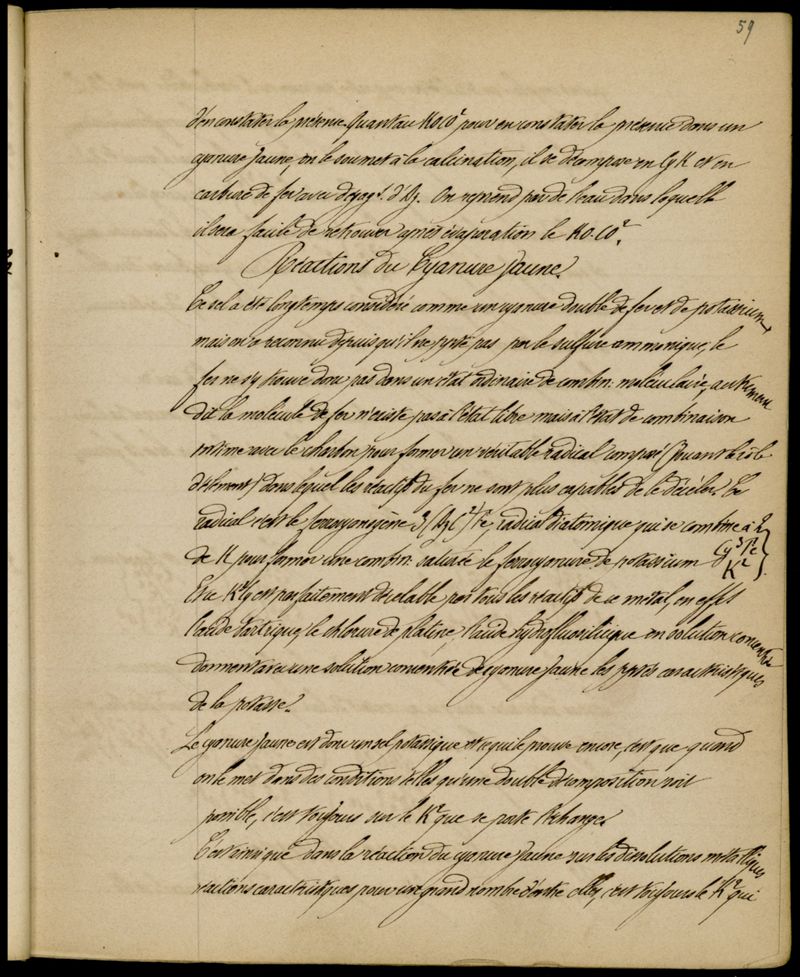 59
d'en constater la présence. Quant au KO.CO² pour en constater la présence dans un
cyanure jaune, on le soumet à la calcination, il se décompose en CyK et en
carbure de fer avec dégagt. d'Az. On reprend par de l'eau dans laquelle
il sera facile de retrouver après évaporation le KO.CO².
Réactions du Cyanure jaune.
Ce sel a été longtemps considéré comme un cyanure double de fer et de potassium,
mais on a reconnu depuis qu'il ne ppte pas par le sulfure ammonique, le
fer ne s'y trouve donc pas dans un état ordinaire de combin. moléculaire, autrement
dit la molécule de fer n'existe pas à l'état libre mais à l'état de combinaison
intime avec le charbon pour former un véritable radical composé (jouant le rôle
d'élément) dans lequel les réactifs du fer ne sont plus capables de le déceler. Ce
radical c'est le ferrocyanogène 3(AzC²)Fe, radical diatomique qui se combine à 2
de K pour former une combin. saturée le ferrocyanure de potassium Cy³Fe K² }.
Et ce K² y est parfaitement décelable par tous les réactifs de ce métal, en effet
l'acide tartrique, le chlorure de platine, l'acide hydrofluosilicique en solution concentrée
donnent avec une solution concentrée de cyanure jaune les pptés caractéristiques
de la potasse.
Le cyanure jaune est donc un sel potassique et ce qui le prouve encore, c'est que quand
on le met dans des conditions telles qu'une double décomposition soit
possible, c'est toujours sur le K² que se porte l'échange.
C'est ainsi que dans la réaction du cyanure jaune sur les dissolutions métalliques
réactions caractéristiques pour un grand nombre d'entre elles, c'est toujours le K² qui